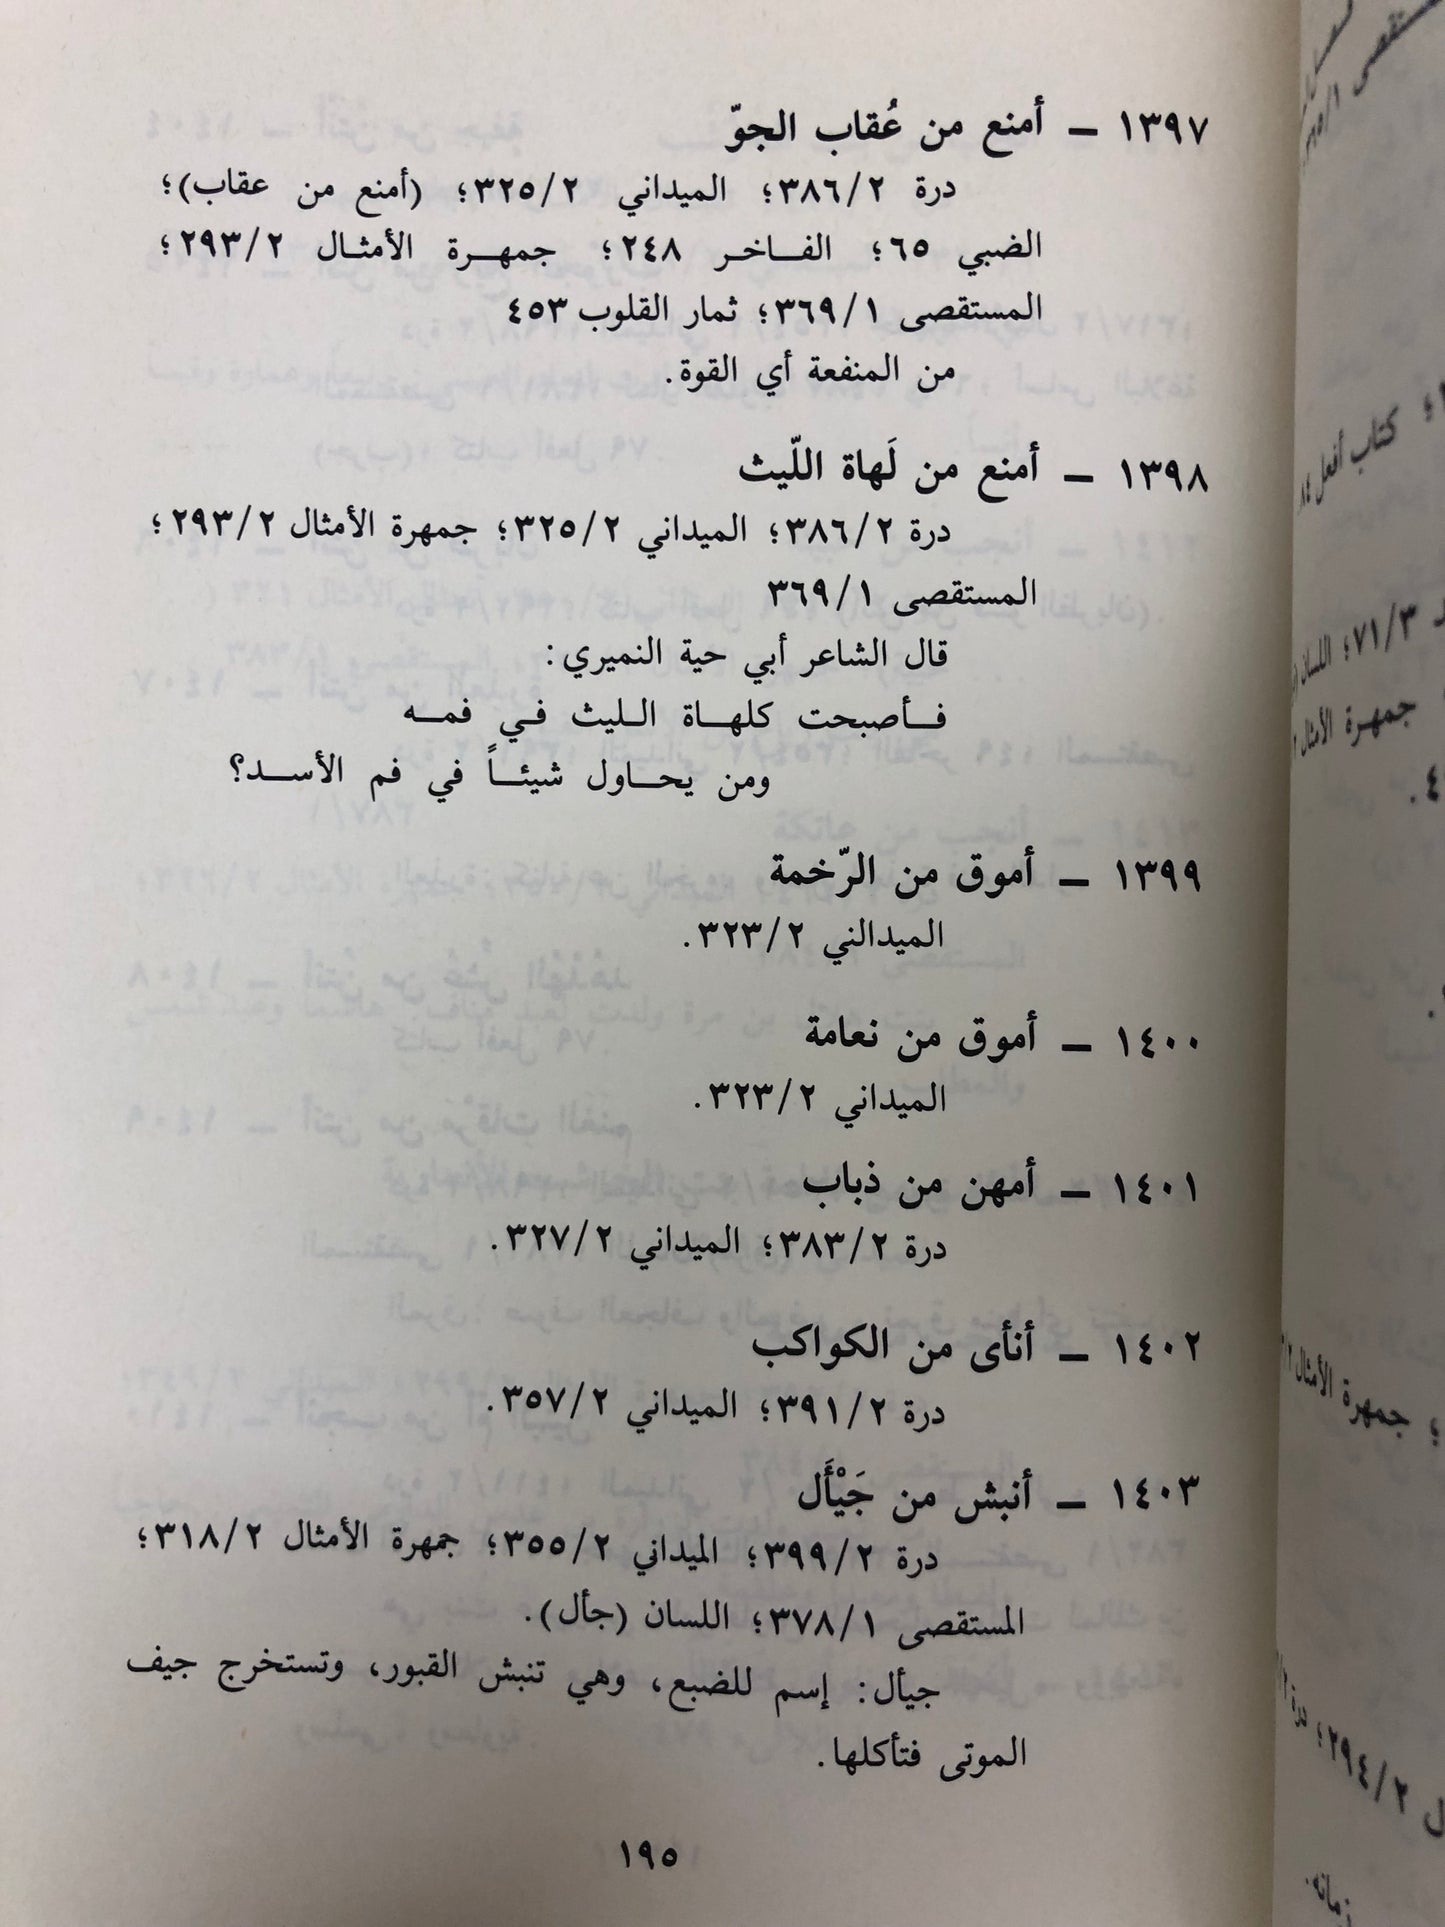 ١٣٩٧ ــ أمنع من عُقاب الجوّ
درة ٣٨٦/٢؛ الميداني ٣٢٥/٢؛ (أمنع من عقاب)؛
الضبي ٦٥؛ الفاخر ٢٤٨؛ جمهرة الأمثال ٢٩٣/٢؛
المستقصى ٣٦٩/١؛ ثمار القلوب ٤٥٣
من المنفعة أي القوة.
١٣٩٨ ــ أمنع من لَهاة اللّيث
درة ٣٨٦/٢؛ الميداني ٣٢٥/٢؛ جمهرة الأمثال ٢٩٣/٢؛
المستقصى ٣٦٩/١
قال الشاعر أبي حية النميري:
فأصبحت كلهاة الليث في فمه
ومن يحاول شيئاً في فم الأسد؟
١٣٩٩ ــ أموق من الرّخمة
الميدالني ٣٢٣/٢.
١٤٠٠ ــ أموق من نعامة
الميداني ٣٢٣/٢.
١٤٠١ ــ أمهن من ذباب
درة ٣٨٣/٢؛ الميداني ٣٢٧/٢.
١٤٠٢ ــ أنأى من الكواكب
درة ٣٩١/٢؛ الميداني ٣٥٧/٢.
١٤٠٣ ــ أنبش من جَيْأَل
درة ٣٩٩/٢؛ الميداني ٣٥٥/٢؛ جمهرة الأمثال ٣١٨/٢؛
المستقصى ٣٧٨/١؛ اللسان (جأل).
جيأل: إسم للضبع، وهي تنبش القبور، وتستخرج جيف
الموتى فتأكلها.
١٩٥
كتاب أفعل
٧١/٣؛ اللسان
جمهرة الأمثال
؛ جمهرة الأمثال
٢٩٤/٢؛ درة
زمانه.